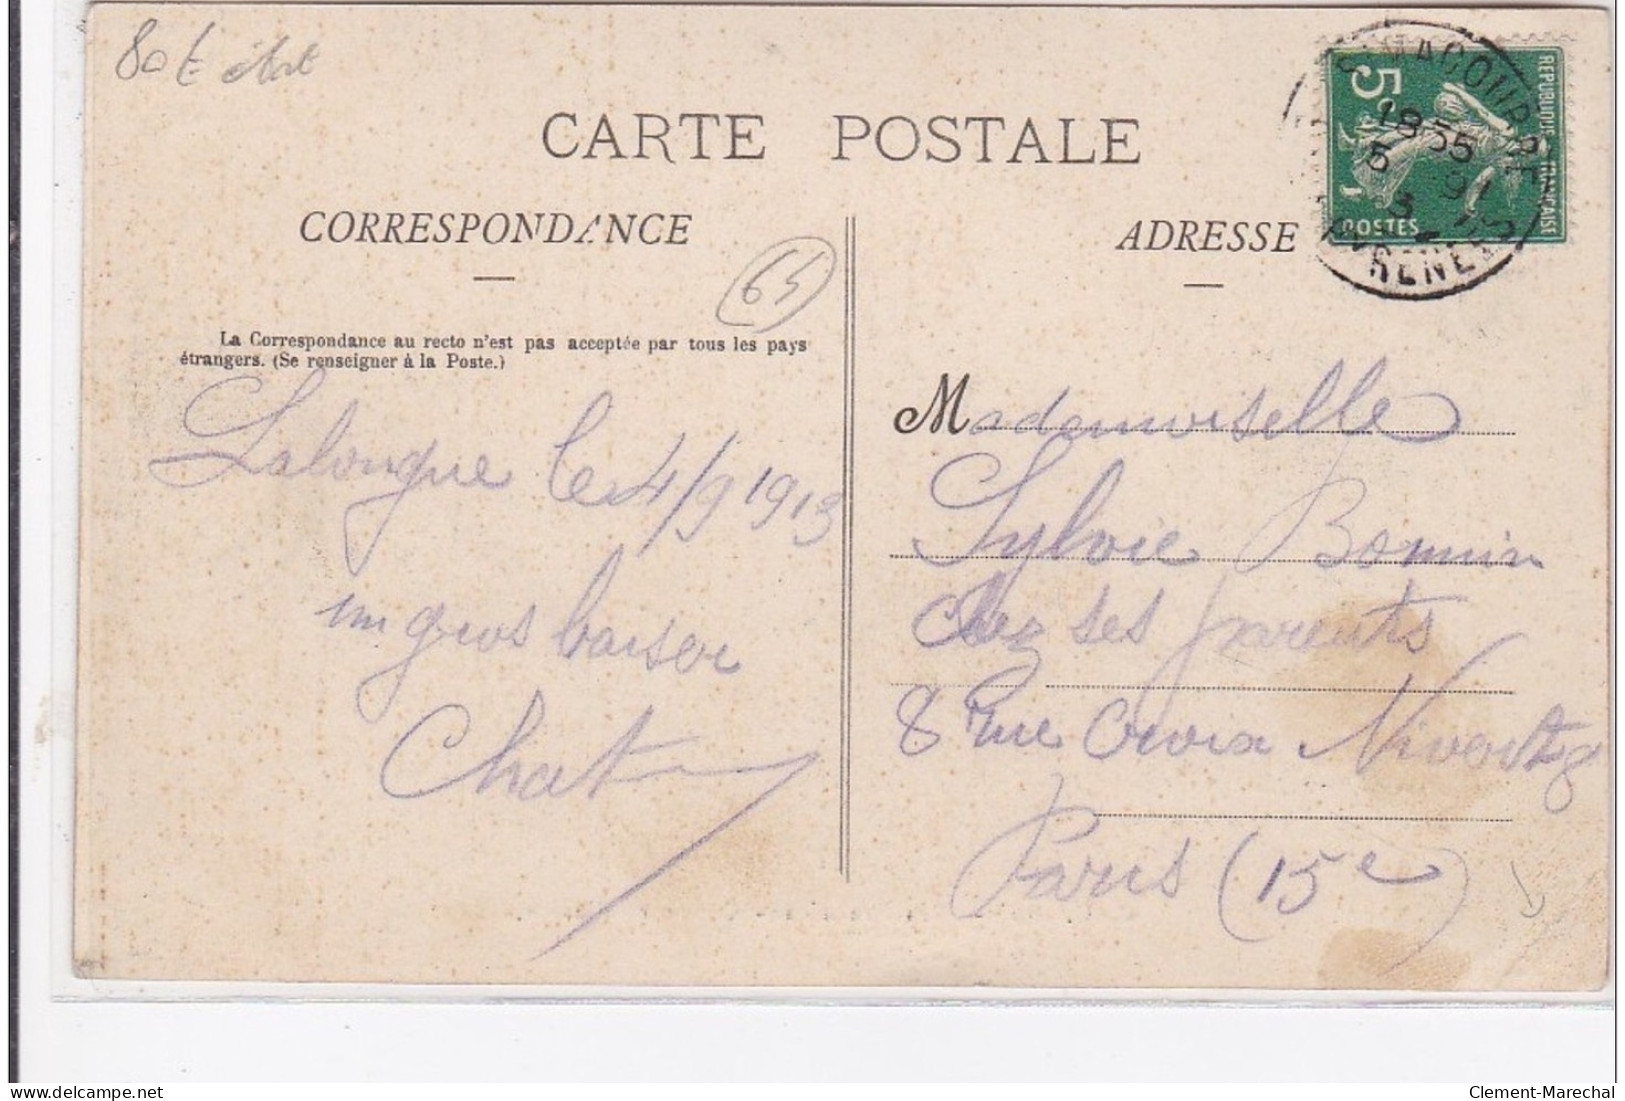 80 € état
CARTE POSTALE
CORRESPONDANCE
ADRESSE
64
La Correspondance au recto n'est pas acceptée par tous les pays
étrangers. (Se renseigner à la Poste.)
REPUBLIQUE FRANÇAISE
5c
POSTES
Lalongue le 4/9 1913
un gros baiser
Chat
Mademoiselle
Sylvie Bonnin
Chez ses parents
8 rue Croix Nivert
Paris (15e)
Clement-Marechal